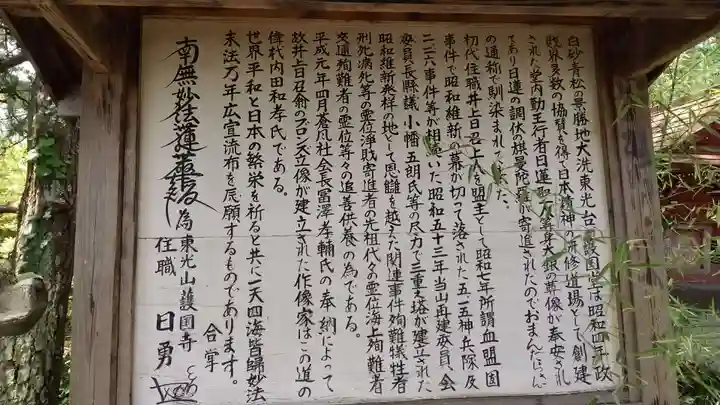 白砂青松の景勝地大洗東光台護国堂は昭和四年政
財界多数の協賛を得て日本精神の研修道場として創建
された堂内勤王行者日蓮聖人等身大銀の尊像が奉安され
てあり日蓮の調伏の旗曼陀羅が寄進されたのでおまんだらさん
の通称で馴染まれて来た。
初代住職井上日召上人を盟主として昭和七年所謂血盟団
事件で昭和維新の幕が切って落された五・一五神兵隊及
二・二六事件等が相続いた昭和五十三年当山再建委員、会
委員長県議小幡五朗氏等の尽力で三重之塔が建立された
昭和維新発祥の地として恩讐を越えた関連事件殉難犠牲者
刑死病死等の霊位浄財寄進者の先祖代々の霊位海上殉難者
交通殉難者の霊位等々の追善供養の為である。
平成元年四月蒼凡社会長冨澤孝輔氏の奉納によって
故井上日召翁のブロンズ立像が建立された作像家はこの道の
偉材内田和孝氏である。
世界平和と日本の繁栄を祈ると共に一天四海皆帰妙法
末法万年広宣流布を辰願するものであります。
合掌
南無妙法蓮華経 為東光山護国寺
住職 日勇